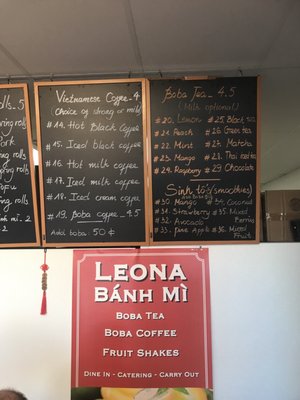 olls - 5
ring rolls
ork
ing rolls
ing rolls
ofu
ing rolls
mì - 2
- 2
Vietnamese Coffee - 4
(Choice of strong or mild)
#14. Hot Black coffee
#15. Iced black coffee
#16. Hot milk coffee
#17. Iced milk coffee
#18. Iced cream coffee
#19. Boba coffee - 4.5
Add boba: 50¢
Boba Tea - 4.5
(Milk optional)
#20. Lemon #25. Black tea
#21. Peach #26. Green tea
#22. Mint #27. Matcha
#23. Mango #28. Thai iced tea
#24. Raspberry #29. Chocolate
Sinh tố's (smoothies)
#30. Mango #34. Coconut
#31. Strawberry #35. Mixed
#32. Avocado Berries
#33. Pine Apple #36. Mixed
Fruits
LEONA
BÁNH MÌ
BOBA TEA
BOBA COFFEE
FRUIT SHAKES
DINE IN - CATERING - CARRY OUT